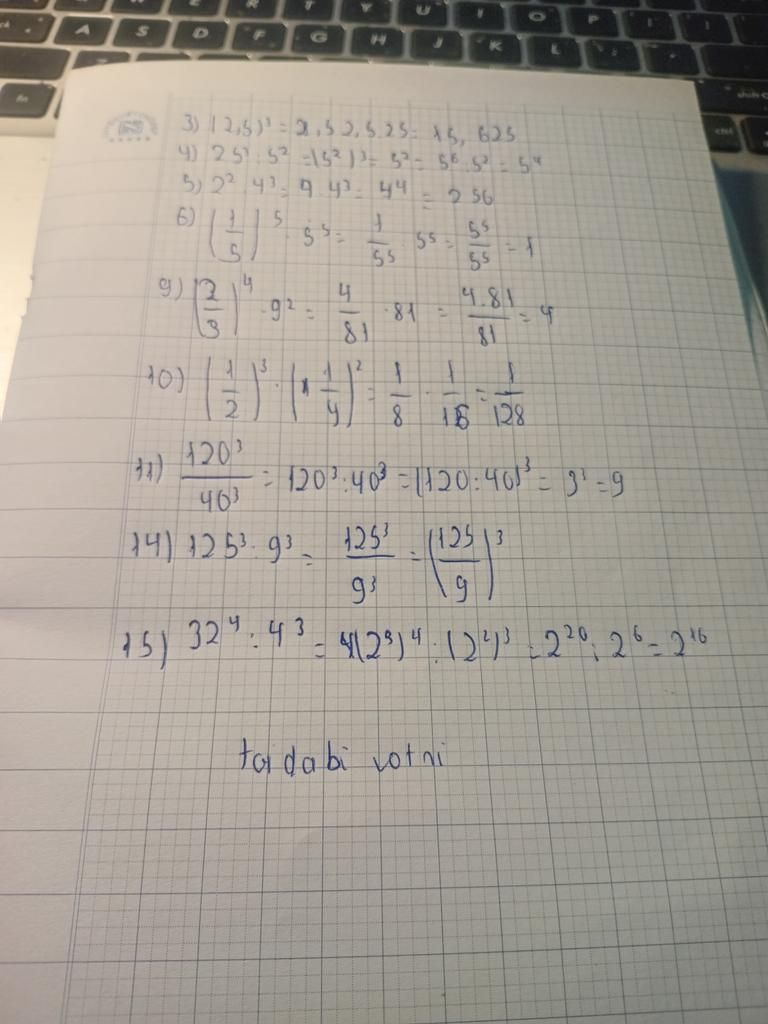 3) (2,5)³ = 2,5 2,5 . 25 = 15, 625
4) 25³ : 5² = (5²)³ = 5² = 5⁶ . 5² = 5⁴
5) 2² . 4³ = 4 . 4³ = 4⁴ = 256
6) (1/5)⁵ . 5⁵ = 1/5⁵ . 5⁵ = 5⁵/5⁵ = 1
9) (2/3)⁴ . 9² = 4/81 . 81 = 4.81/81 = 4
10) (1/2)³ . (1/4)² = 1/8 . 1/16 = 1/128
11) 120³/40³ = 120³ : 40³ = (120 : 40)³ = 3³ = 9
14) 125³ : 9³ = 125³/9³ = (125/9)³
15) 32⁴ : 4³ = (2⁵)⁴ : (2²)³ = 2²⁰ : 2⁶ = 2¹⁶